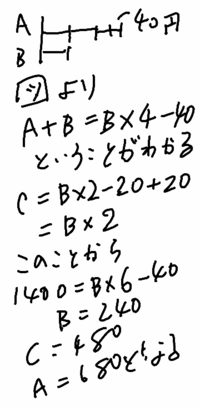 A
40円
B
図より
A+B=B×4-40
ということがわかる
C=B×2-20+20
=B×2
このことから
1400=B×6-40
B=240
C=480
A=680となる